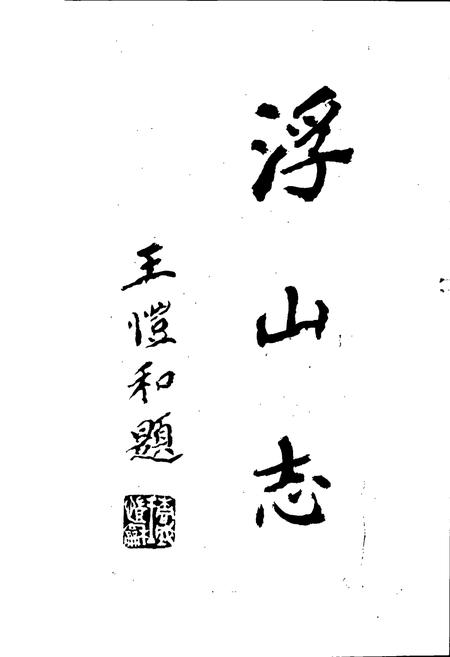 浮山志
王愷和題